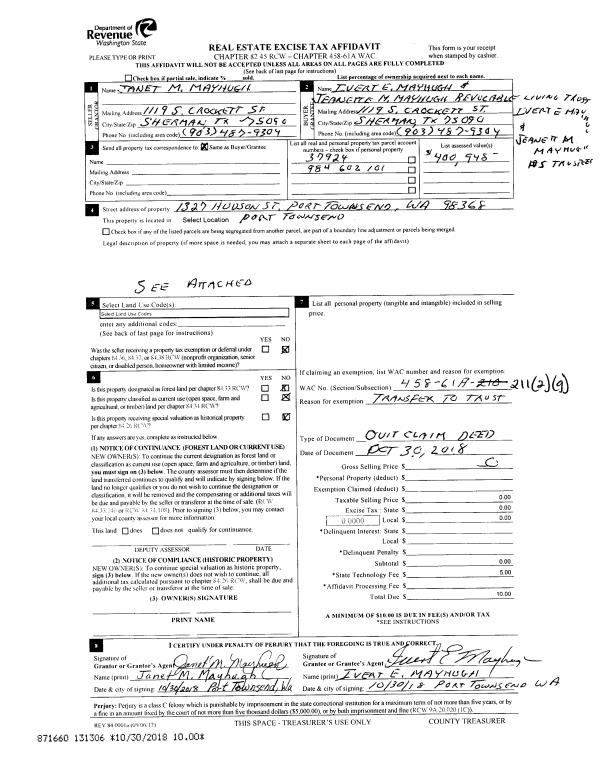 Department of
Revenue
Washington State
REAL ESTATE EXCISE TAX AFFIDAVIT
This form is your receipt
PLEASE TYPE OR PRINT
CHAPTER 82.45 RCW – CHAPTER 458-61A WAC
when stamped by cashier.
THIS AFFIDAVIT WILL NOT BE ACCEPTED UNLESS ALL AREAS ON ALL PAGES ARE FULLY COMPLETED
(See back of last page for instructions)
Check box if partial sale, indicate % sold.
List percentage of ownership acquired next to each name.
1 Name JANET M. MAYHUGH
2 Name IVERT E. MAYHUGH &
JEANETTE M. MAYHUGH REVOCABLE LIVING TRUST
SELLER
GRANTOR
Mailing Address 1119 S. CROCKETT ST
City/State/Zip SHERMAN TX 75090
Phone No. (including area code) (903) 487-9304
BUYER
GRANTEE
Mailing Address 1119 S. CROCKETT ST
City/State/Zip SHERMAN TX 75090
Phone No. (including area code) (903) 487-9304
IVERT E MAY
&
JEANETT M
MAYHUGH
AS TRUSTEES
3 Send all property tax correspondence to: Same as Buyer/Grantee
List all real and personal property tax parcel account
numbers – check box if personal property
List assessed value(s)
Name
37924
$ 400,948
984 602 101
Mailing Address
City/State/Zip
Phone No. (including area code)
4 Street address of property: 1327 HUDSON ST, PORT TOWNSEND, WA 98368
This property is located in Select Location PORT TOWNSEND
Check box if any of the listed parcels are being segregated from another parcel, are part of a boundary line adjustment or parcels being merged.
Legal description of property (if more space is needed, you may attach a separate sheet to each page of the affidavit)
SEE ATTACHED
5 Select Land Use Code(s):
Select Land Use Codes
enter any additional codes:
(See back of last page for instructions)
YES NO
Was the seller receiving a property tax exemption or deferral under
chapters 84.36, 84.37, or 84.38 RCW (nonprofit organization, senior
citizen, or disabled person, homeowner with limited income)?
6
YES NO
Is this property designated as forest land per chapter 84.33 RCW?
Is this property classified as current use (open space, farm and
agricultural, or timber) land per chapter 84.34 RCW?
Is this property receiving special valuation as historical property
per chapter 84.26 RCW?
If any answers are yes, complete as instructed below.
(1) NOTICE OF CONTINUANCE (FOREST LAND OR CURRENT USE)
NEW OWNER(S): To continue the current designation as forest land or
classification as current use (open space, farm and agriculture, or timber) land,
you must sign on (3) below. The county assessor must then determine if the
land transferred continues to qualify and will indicate by signing below. If the
land no longer qualifies or you do not wish to continue the designation or
classification, it will be removed and the compensating or additional taxes will
be due and payable by the seller or transferor at the time of sale. (RCW
84.33.140 or RCW 84.34.108). Prior to signing (3) below, you may contact
your local county assessor for more information.
This land does does not qualify for continuance.
DEPUTY ASSESSOR DATE
(2) NOTICE OF COMPLIANCE (HISTORIC PROPERTY)
NEW OWNER(S): To continue special valuation as historic property,
sign (3) below. If the new owner(s) does not wish to continue, all
additional tax calculated pursuant to chapter 84.26 RCW, shall be due and
payable by the seller or transferor at the time of sale.
(3) OWNER(S) SIGNATURE
PRINT NAME
7 List all personal property (tangible and intangible) included in selling
price.
If claiming an exemption, list WAC number and reason for exemption:
WAC No. (Section/Subsection) 458-61A-210 211(2)(g)
Reason for exemption TRANSFER TO TRUST
Type of Document QUIT CLAIM DEED
Date of Document OCT 30, 2018
Gross Selling Price $ 0
*Personal Property (deduct) $
Exemption Claimed (deduct) $
Taxable Selling Price $ 0.00
Excise Tax : State $ 0.00
0.0000 Local $ 0.00
*Delinquent Interest: State $
Local $
*Delinquent Penalty $
Subtotal $ 0.00
*State Technology Fee $ 5.00
*Affidavit Processing Fee $
Total Due $ 10.00
A MINIMUM OF $10.00 IS DUE IN FEE(S) AND/OR TAX
*SEE INSTRUCTIONS
8 I CERTIFY UNDER PENALTY OF PERJURY THAT THE FOREGOING IS TRUE AND CORRECT.
Signature of
Grantor or Grantor's Agent Janet M. Mayhugh
Name (print) Janet M. Mayhugh
Date & city of signing: 10/30/2018 Port Townsend, Wa
Signature of
Grantee or Grantee's Agent Ivert E Mayhugh
Name (print) IVERT E. MAYHUGH
Date & city of signing: 10/30/18 PORT TOWNSEND WA
Perjury: Perjury is a class C felony which is punishable by imprisonment in the state correctional institution for a maximum term of not more than five years, or by
a fine in an amount fixed by the court of not more than five thousand dollars ($5,000.00), or by both imprisonment and fine (RCW 9A.20.020 (1C)).
REV 84 0001a (09/06/17)
THIS SPACE - TREASURER'S USE ONLY
COUNTY TREASURER
871660 131306 *10/30/2018 10.00*